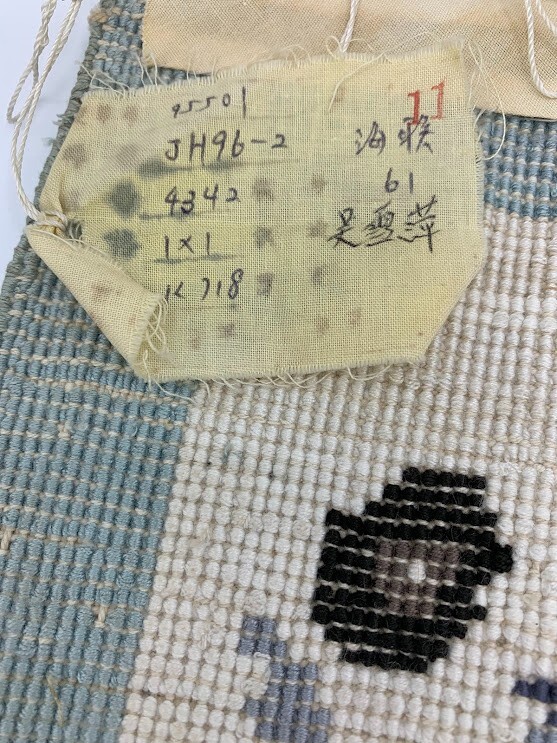 95501
JH96-2
4342
1×1
K718
11
海联
61
吴雪萍